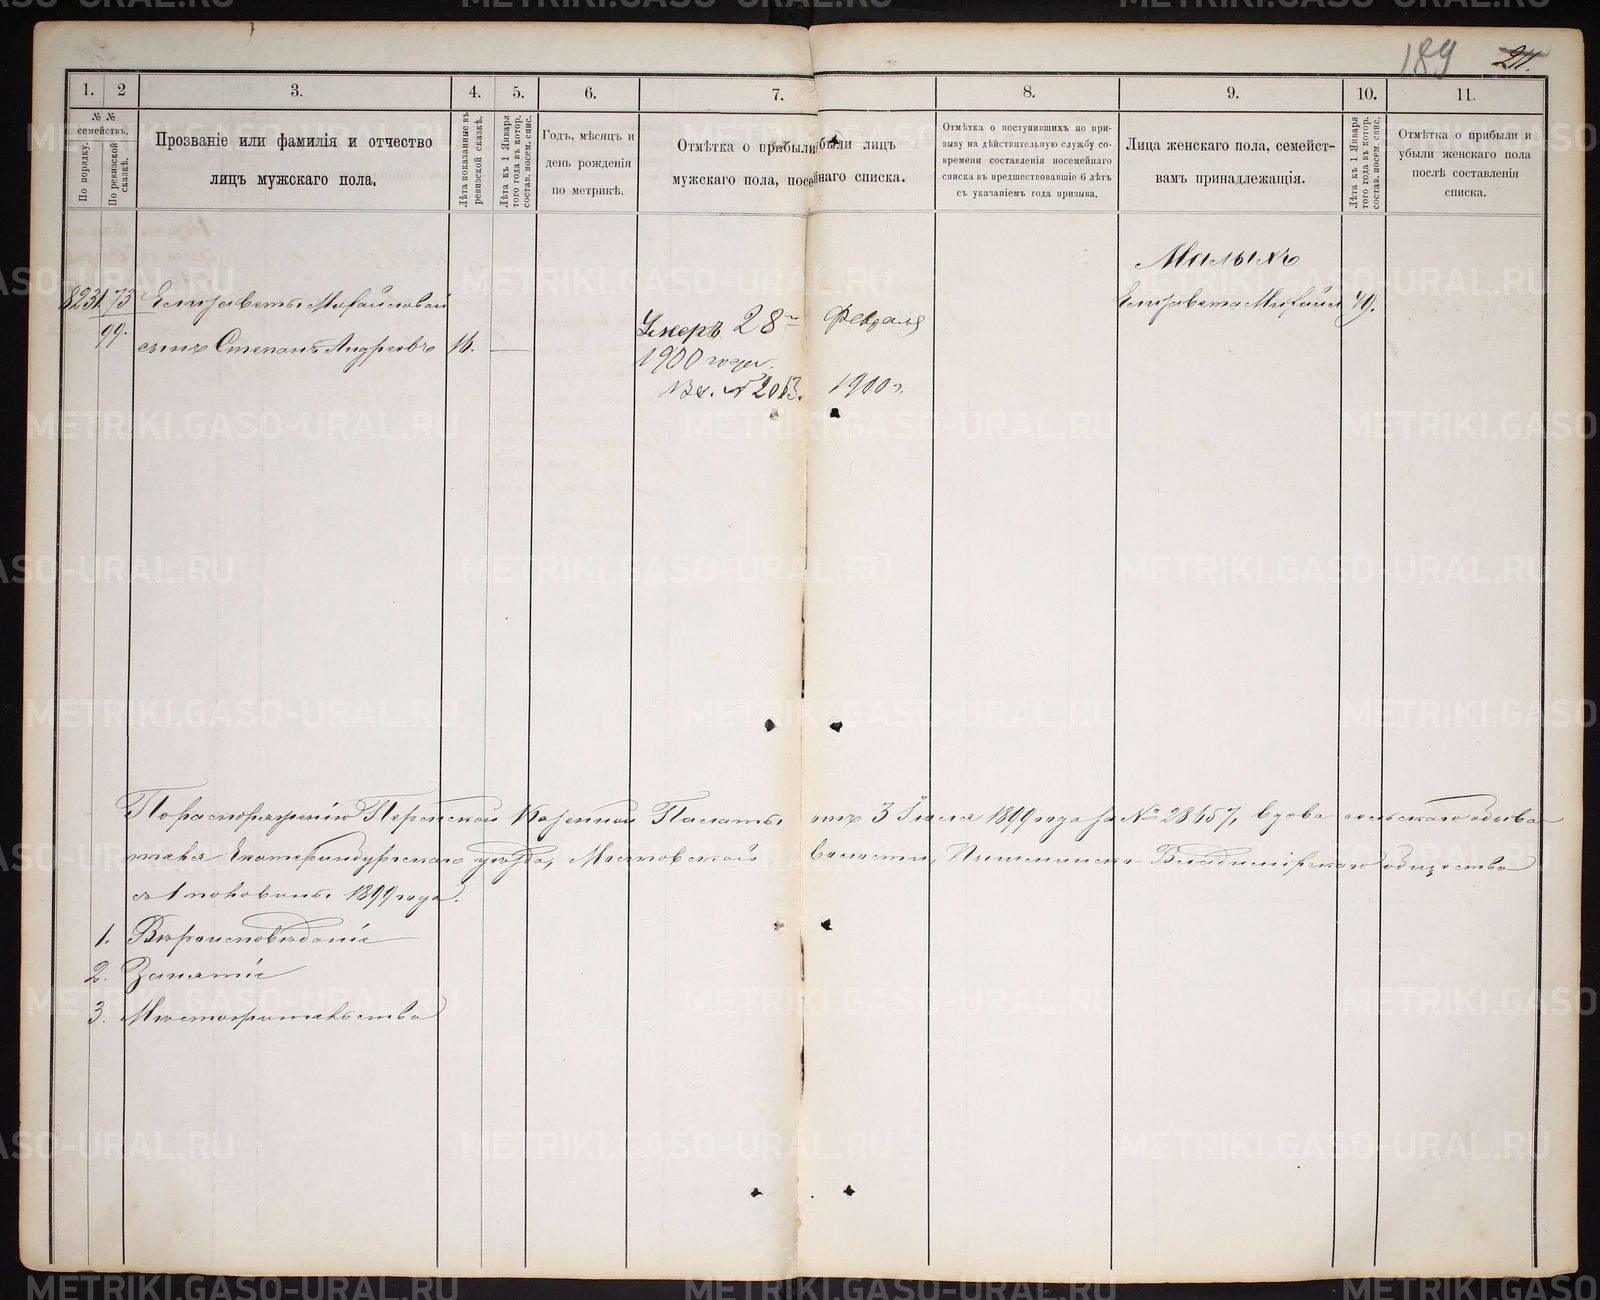 189 211.
1. 2 3. 4. 5. 6. 7. 8. 9. 10. 11.
№ №
семействъ.
По порядку.
По ревизской
сказкѣ.
Прозваніе или фамилія и отчество
лицъ мужскаго пола.
Лѣта показанные въ
ревизской сказкѣ.
Лѣта къ 1 Января
того года въ котор.
состав. посем. спис.
Годъ, мѣсяцъ и
день рожденія
по метрикѣ.
Отмѣтка о прибыли
были лицъ
мужскаго пола, посе
йнаго списка.
Отмѣтка о поступившихъ по при-
зыву на дѣйствительную службу со-
времени составленія посемейнаго
списка въ предшествовавшіе 6 лѣтъ
съ указаніемъ года призыва.
Лица женскаго пола, семейст-
вамъ принадлежащія.
Лѣта къ 1 Января
того года въ котор.
состав. посем. спис.
Отмѣтка о прибыли и
убыли женскаго пола
послѣ составленія
списка.
Малыхъ
8231. 73 Елизаветы Михайловой
Елизавета Михайл 49.
99. сынъ Степанъ Андреевъ 16. —
Умеръ 28 Февраля
1900 года.
Вх. № 2013. 1900 г.
По распоряженію Пермской Казенной Палаты отъ 3 Іюля 1899 года за № 28457, вдова сельскаго обыва
теля Екатеринбургскаго уѣзда, волости, Пышминско-Владимірскаго общества
съ 1 половины 1899 года.
1. Вѣроисповѣданіе
2. Занятіе
3. Мѣстожительство
METRIKI.GASO-URAL.RU